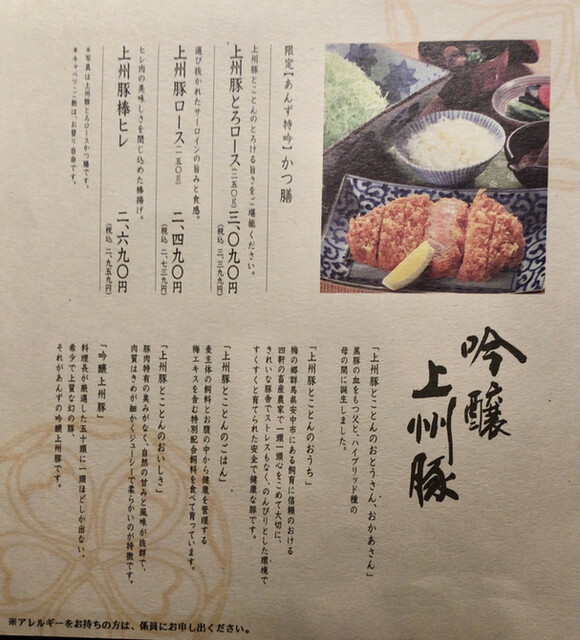 限定【あんず特吟】かつ膳
上州豚とことんのとろける旨さをご堪能ください。
上州豚とろロース(二五〇g) 三、〇九〇円
(税込 三、三九九円)
選び抜かれたサーロインの旨みと食感。
上州豚ロース(一五〇g) 二、四九〇円
(税込 二、七三九円)
ヒレ肉の美味しさを閉じ込めた棒揚げ。
上州豚棒ヒレ 二、六九〇円
(税込 二、九五九円)
※写真は上州豚とろロースかつ膳です。
※キャベツ・ご飯は、お替り自由です。
吟醸
上州豚
「上州豚とことんのおとうさん、おかあさん」
黒豚の血をもつ父と、ハイブリッド種の
母の間に誕生しました。
「上州豚とことんのおうち」
梅の郷群馬県安中市にある飼育に信頼のおける
四軒の畜産農家で一頭一頭心をこめて大切に、
きれいな豚舎でストレスもなく、のんびりとした環境で
すくすくと育てられた安全で健康な豚です。
「上州豚とことんのごはん」
麦主体の飼料とお腹の中から健康を管理する
梅エキスを含む特別配合飼料を食べて育っています。
「上州豚とことんのおいしさ」
豚肉特有の臭みがなく、自然の甘みと風味が抜群で、
肉質はきめが細かくジューシーで柔らかいのが特徴です。
「吟醸上州豚」
料理長が厳選した五十頭に一頭ほどしか出ない、
希少で上質な幻の豚。
それがあんずの吟醸上州豚です。
※アレルギーをお持ちの方は、係員にお申し出ください。